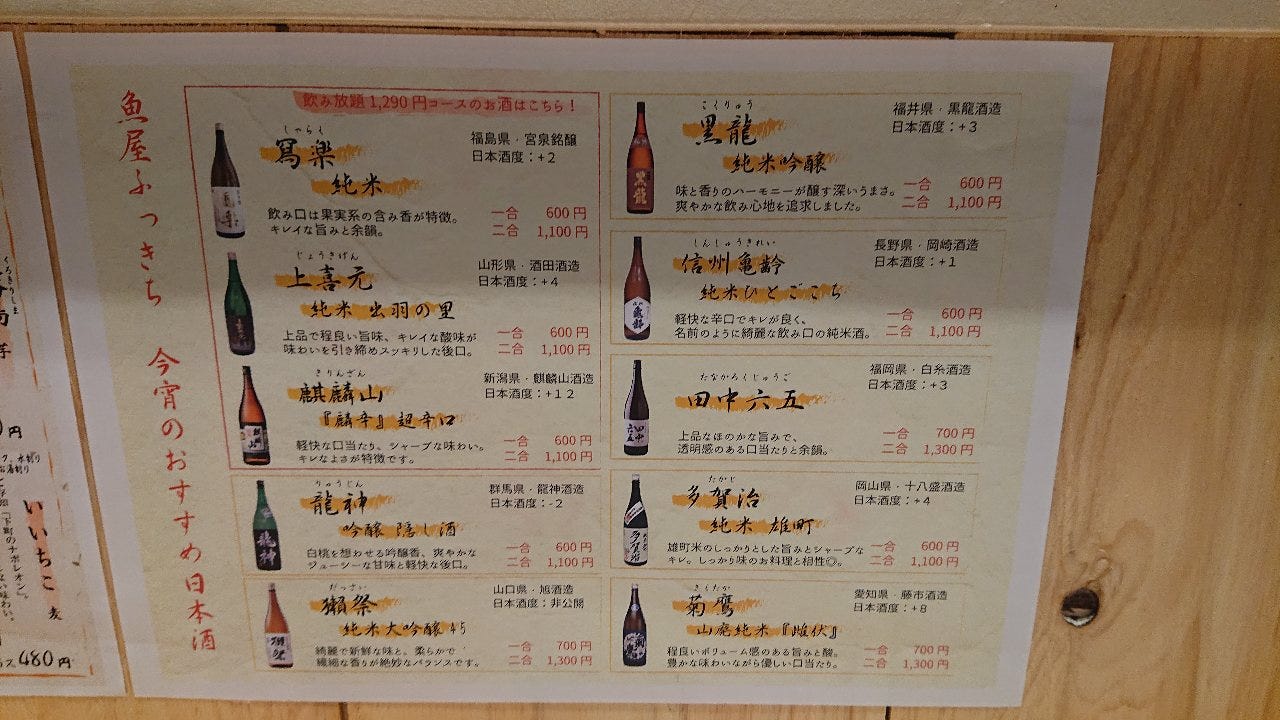 魚屋ふっきち 今宵のおすすめ日本酒
飲み放題1,290円コースのお酒はこちら！
しゃらく
冩楽
純米
福島県・宮泉銘醸
日本酒度：+2
飲み口は果実系の含み香が特徴。
キレイな旨みと余韻。
一合 600円
二合 1,100円
じょうきげん
上喜元
純米 出羽の里
山形県・酒田酒造
日本酒度：+4
上品で程良い旨味、キレイな酸味が
味わいを引き締めスッキリした後口。
一合 600円
二合 1,100円
きりんざん
麒麟山
『麟辛』超辛口
新潟県・麒麟山酒造
日本酒度：+12
軽快な口当たり、シャープな味わい。
キレなよさが特徴です。
一合 600円
二合 1,100円
りゅうじん
龍神
吟醸 隠し酒
群馬県・龍神酒造
日本酒度：-2
白桃を想わせる吟醸香、爽やかな
ジューシーな甘味と軽快な後口。
一合 600円
二合 1,100円
だっさい
獺祭
純米大吟醸 45
山口県・旭酒造
日本酒度：非公開
綺麗で新鮮な味と、柔らかで
繊細な香りが絶妙なバランスです。
一合 700円
二合 1,300円
こくりゅう
黒龍
純米吟醸
福井県・黒龍酒造
日本酒度：+3
味と香りのハーモニーが醸す深いうまさ。
爽やかな飲み心地を追求しました。
一合 600円
二合 1,100円
しんしゅうきれい
信州亀齢
純米ひとごこち
長野県・岡崎酒造
日本酒度：+1
軽快な辛口でキレが良く、
名前のように綺麗な飲み口の純米酒。
一合 600円
二合 1,100円
たなかろくじゅうご
田中六五
福岡県・白糸酒造
日本酒度：+3
上品なほのかな旨みで、
透明感のある口当たりと余韻。
一合 700円
二合 1,300円
たかじ
多賀治
純米 雄町
岡山県・十八盛酒造
日本酒度：+4
雄町米のしっかりとした旨みとシャープな
キレ。しっかり味のお料理と相性◎。
一合 600円
二合 1,100円
きくたか
菊鷹
山廃純米『雌伏』
愛知県・藤市酒造
日本酒度：+8
程良いボリューム感のある旨みと酸。
豊かな味わいながら優しい口当たり。
一合 700円
二合 1,300円
くろきりしま
芋
円
いいちこ 麦
「下町のナポレオン」。
480円